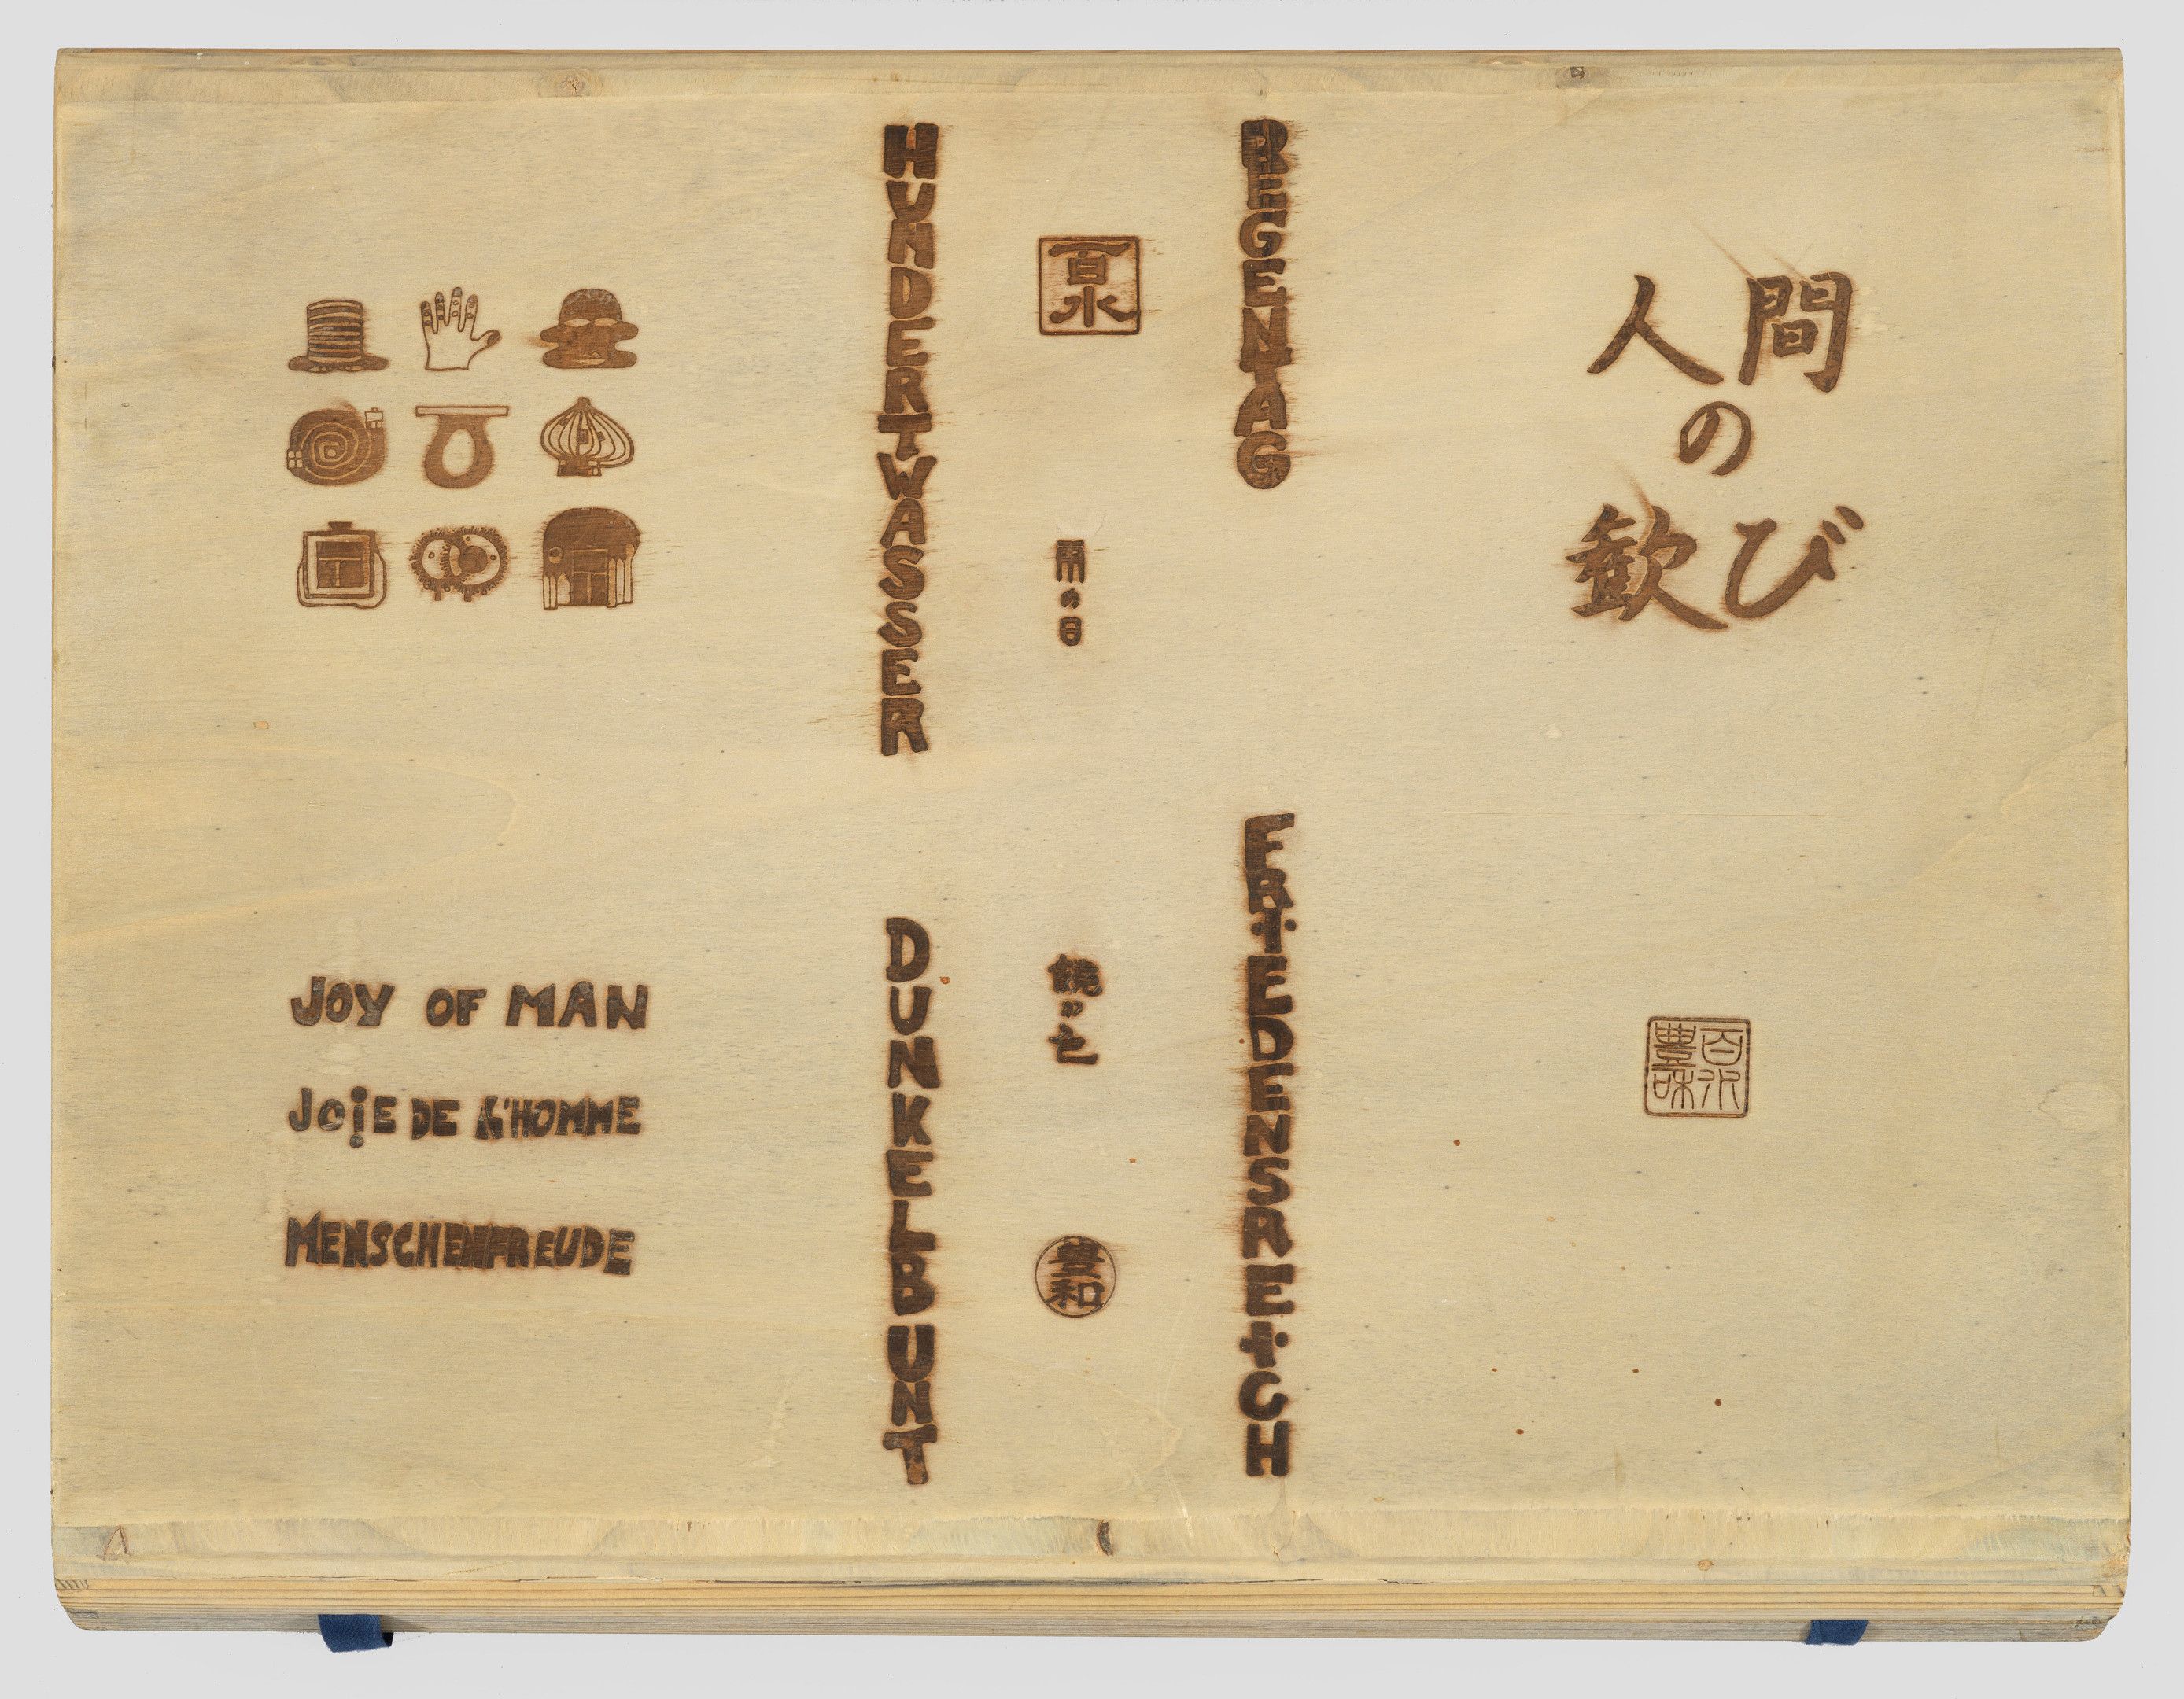 HUNDERTWASSER
百水
REGENTAG
人間
の
歓び
の日
JOY OF MAN
JOIE DE L'HOMME
MENSCHENFREUDE
DUNKELBUNT
豊和
FRIEDENSREICH
百水
豊味